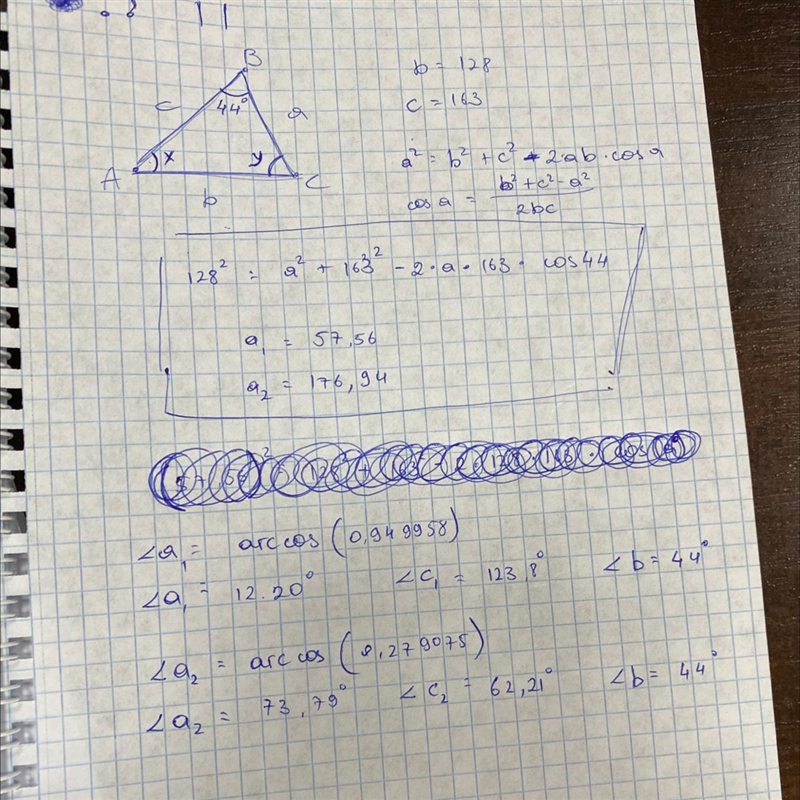 B
c 44° a
x y
A b C
b = 128
c = 163
a² = b² + c² - 2ab · cos a
cos a = b² + c² - a² / 2bc
128² = a² + 163² - 2 · a · 163 · cos 44
a₁ = 57,56
a₂ = 176,94
∠a₁ = arc cos (0,949958)
∠a₁ = 12.20° ∠c₁ = 123,8° ∠b = 44°
∠a₂ = arc cos (0,279075)
∠a₂ = 73,79° ∠c₂ = 62,21° ∠b = 44°